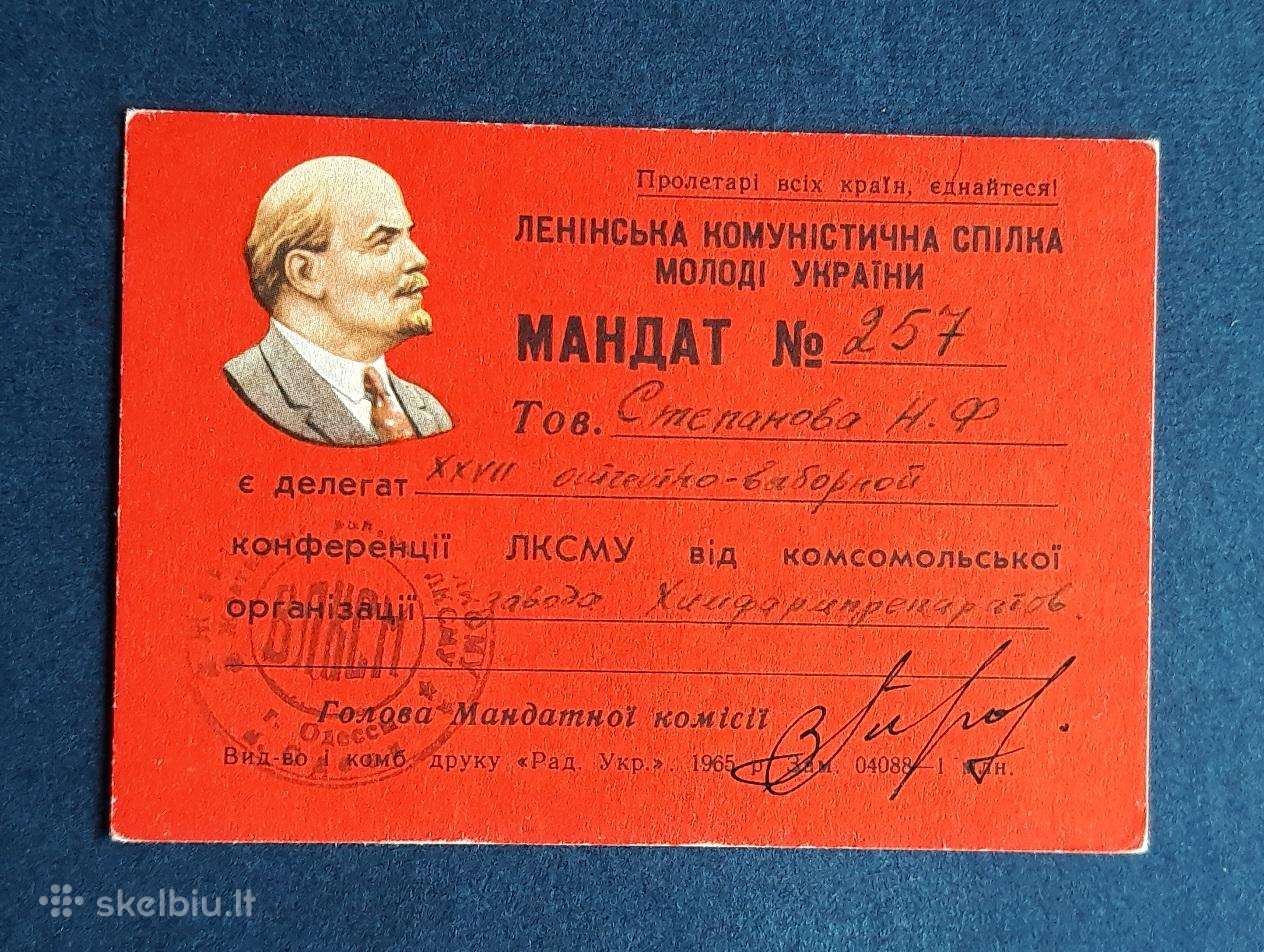 Пролетарі всіх країн, єднайтеся!
ЛЕНІНСЬКА КОМУНІСТИЧНА СПІЛКА
МОЛОДІ УКРАЇНИ
МАНДАТ № 257
Тов. Степанова Н.Ф
є делегат XXVII отчетно-выборной
конференції ЛКСМУ від комсомольської
організації завода Химфармпрепаратов
ВЛКСМ
ЛКСМУ
г. Одессы
Голова Мандатної комісії
Вид-во і комб. друку «Рад. Укр.». 1965 р. Зам. 04088—1 млн.
skelbiu.lt